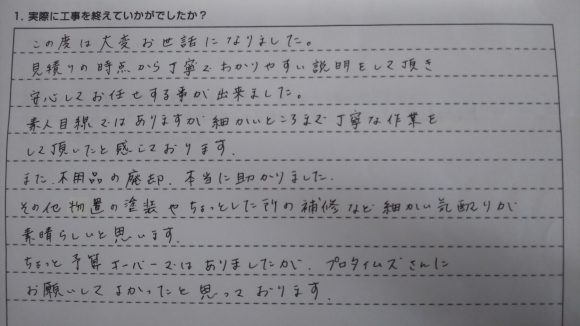 1. 実際に工事を終えていかがでしたか？
この度は大変お世話になりました。
見積りの時点から丁寧でわかりやすい説明をして頂き
安心してお任せする事が出来ました。
素人目線ではありますが細かいところまで丁寧な作業を
して頂いたと感じております.
また.不用品の廃却.本当に助かりました.
その他物置の塗装やちょっとした所の補修など細かい気配りが
素晴らしいと思います.
ちょっと予算オーバーではありましたが.プロタイムズさんに
お願いしてよかったと思っております.